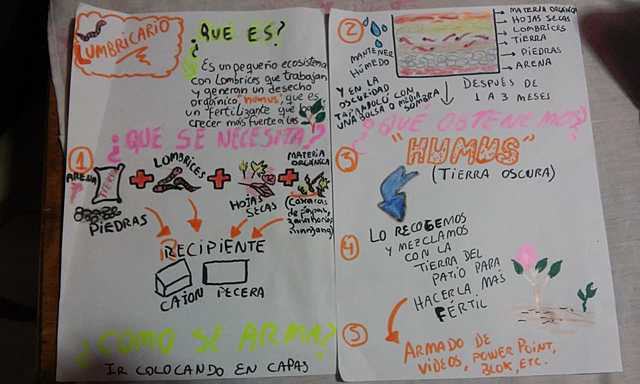 LUMBRICARIO
¿QUE ES?
ES un pequeño ecosistema
con Lombrices que trabajan
y generan un desecho
orgánico "humus", que es
un fertilizante que
crecer más fuerte a las
¿QUE SE NECESITA?
1
ARENA
TIERRA
+ LOMBRICES + +
MATERIA
ORGÁNICA
PIEDRAS
HOJAS
SECAS
(cáscaras
de papas,
zanahorias,
manzana)
RECIPIENTE
CAJON PECERA
¿COMO SE ARMA?
IR COLOCANDO EN CAPAS
2
MATERIA ORGÁNICA
HOJAS SECAS
LOMBRICES
TIERRA
PIEDRAS
ARENA
MANTENER
HÚMEDO
Y EN LA
OSCURIDAD
TAPADOLO CON
UNA BOLSA O MEDIA
SOMBRA
DESPUÉS DE
1 A 3 MESES
¿QUE OBTENEMOS?
3
"HUMUS"
(TIERRA OSCURA)
4
LO RECOGEMOS
Y MEZCLAMOS
CON LA
TIERRA DEL
PATIO PARA
HACERLA MÁS
FÉRTIL
5
ARMADO DE
VIDEOS, POWER POINT,
BLOK, ETC.